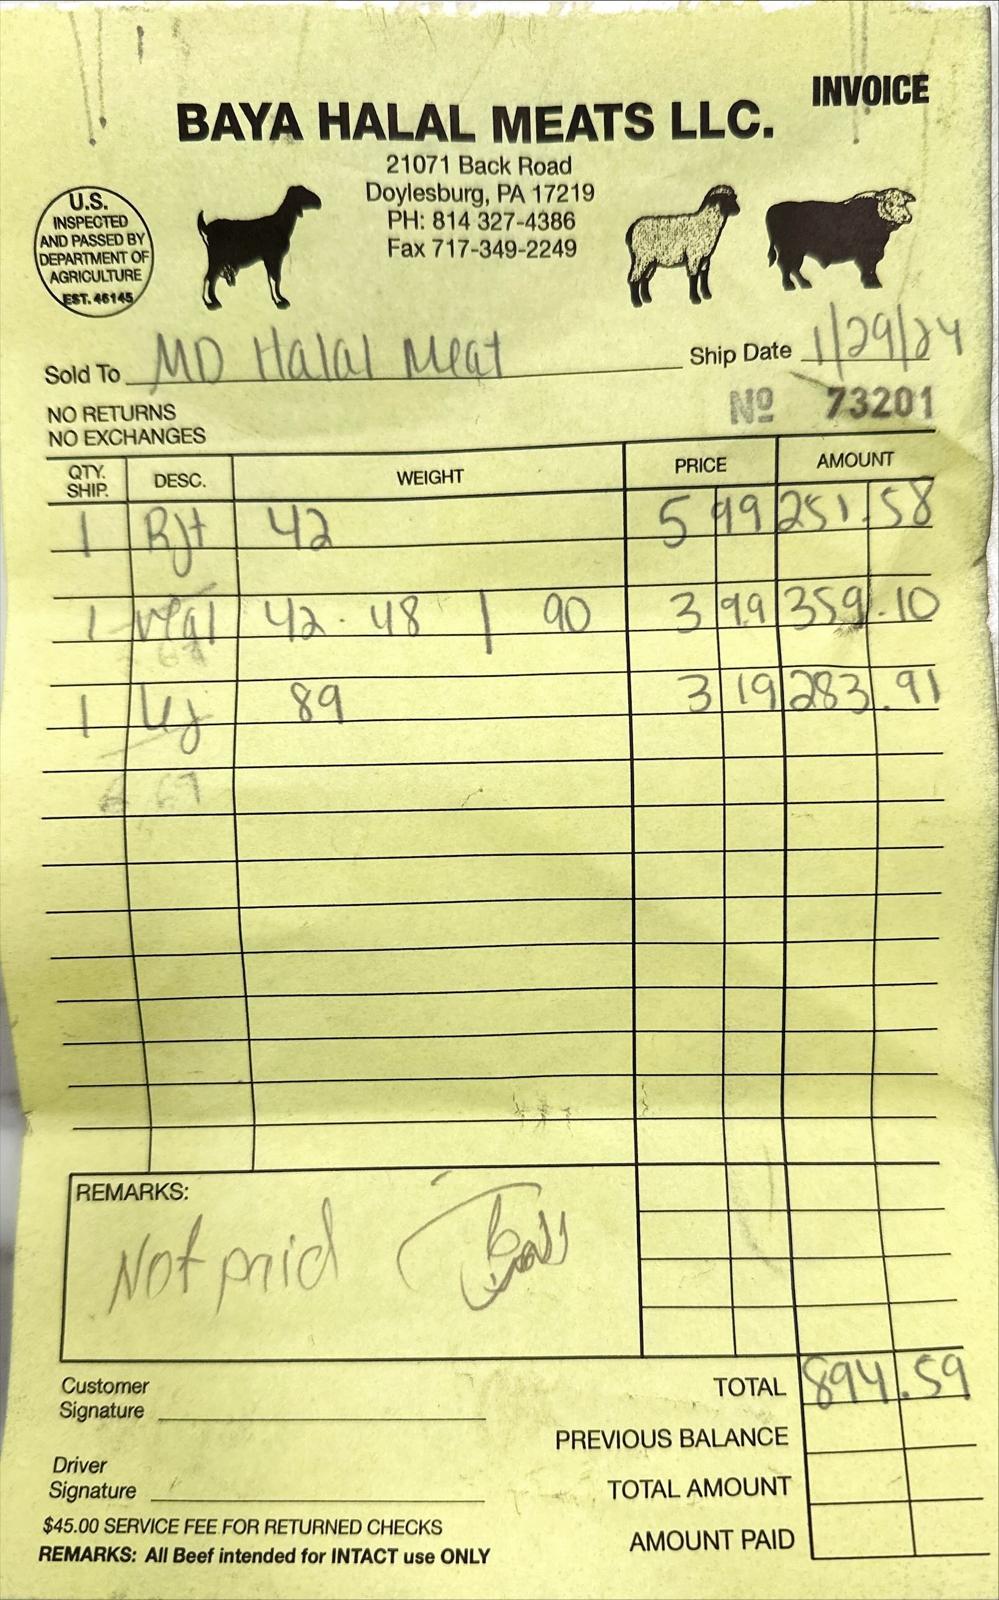 INVOICE
BAYA HALAL MEATS LLC.
21071 Back Road
Doylesburg, PA 17219
PH: 814 327-4386
Fax 717-349-2249
U.S.
INSPECTED
AND PASSED BY
DEPARTMENT OF
AGRICULTURE
EST. 46145
Sold To MD Halal Meat Ship Date 1/29/24
NO RETURNS
NO EXCHANGES
Nº 73201
QTY. SHIP. DESC. WEIGHT PRICE AMOUNT
1 42 5 99 251.58
1 42. 48 | 90 3 99 359.10
1 89 3 19 283.91
REMARKS:
Not paid
Customer
Signature
Driver
Signature
TOTAL 894.59
PREVIOUS BALANCE
TOTAL AMOUNT
AMOUNT PAID
$45.00 SERVICE FEE FOR RETURNED CHECKS
REMARKS: All Beef intended for INTACT use ONLY